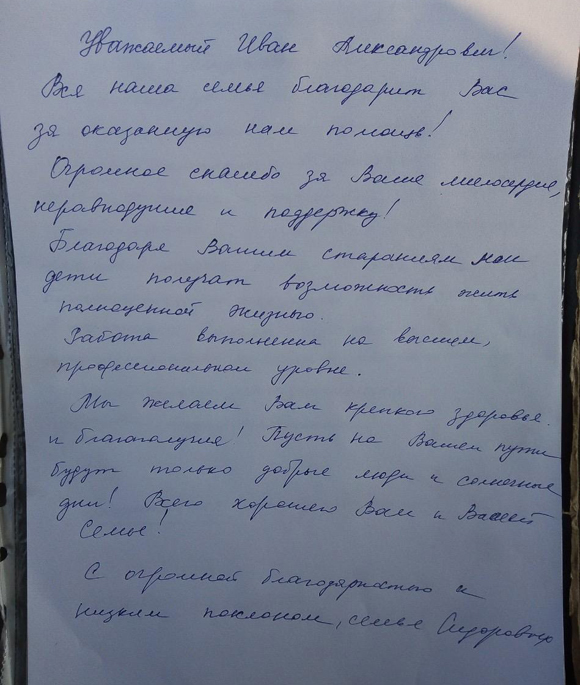 Уважаемый Иван Александрович!
Вся наша семья благодарит Вас
за оказанную нам помощь!
Огромное спасибо за Ваше милосердие,
неравнодушие и поддержку!
Благодаря Вашим стараниям мои
дети получат возможность жить
полноценной жизнью.
Работа выполнена на высшем,
профессиональном уровне.
Мы желаем Вам крепкого здоровья
и благополучия! Пусть на Вашем пути
будут только добрые люди и солнечные
дни! Всего хорошего Вам и Вашей
семье!
С огромной благодарностью и
низким поклоном, семья Сидоровых